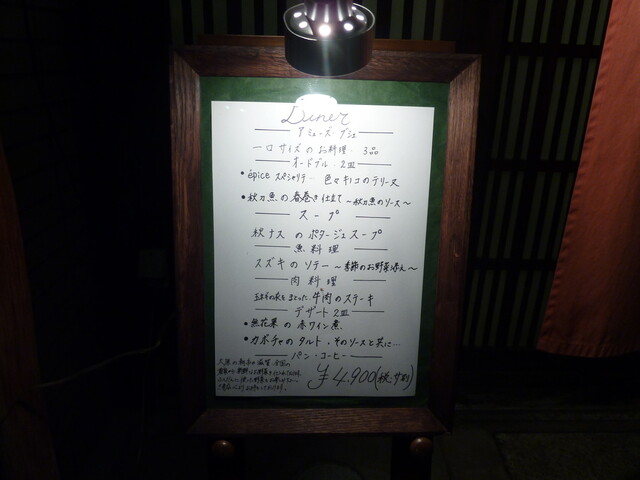 Dîner
アミューズ・ブシュ
一口サイズのお料理 3品
オードブル 2皿
・épice スペシャリテー 色々キノコのテリーヌ
・秋刀魚の春巻き仕立て ～秋刀魚のソース～
スープ
秋ナスのポタージュスープ
魚料理
スズキのソテー ～季節のお野菜添え～
肉料理
牛肉のステーキ
デザート 2皿
・無花果の赤ワイン煮
・カボチャのタルト、そのソースと共に…
パン・コーヒー
¥4,900(税・サ別)